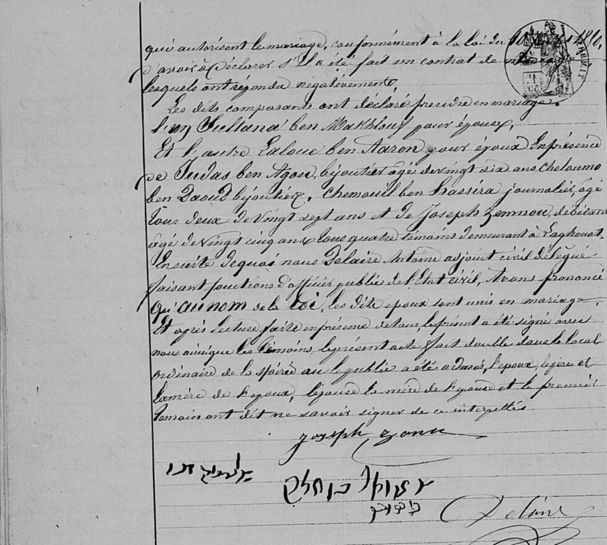 qui autorisent le mariage, conformément à la loi du 10
d'avoir à déclarer s'il a été fait un contrat de mariage
lesquels ont répondu négativement
Les dits comparants ont déclaré prendre en mariage
l'un Sultana ben Makhlouf pour épouse,
Et l'autre Laloue ben Aaron pour époux En présence
de Judas ben bijoutier âgé de vingt six ans, Cheloumo
ben Daoud bijoutier, Chemouil ben Hassira journalier, âgé
tous deux de vingt sept ans et de Joseph Zemmou, débitant
âgé de vingt cinq ans tous quatre témoins demeurant à Laghouat.
Ensuite de quoi nous Delaire Antoine adjoint civil délégué
faisant fonctions d'officier public de l'Etat civil, avons prononcé
qu'au nom de la loi, les dits époux sont unis en mariage
Et après lecture faite en présence de tous, le présent a été signé avec
nous ainsi que les témoins le présent acte fait double dans le local
ordinaire de la où le public a été admis, l'époux, le père et
la mère de l'époux, l'épouse la mère de l'épouse et le premier
témoin ont dit ne savoir signer de ce interpellés
joseph
Delaire